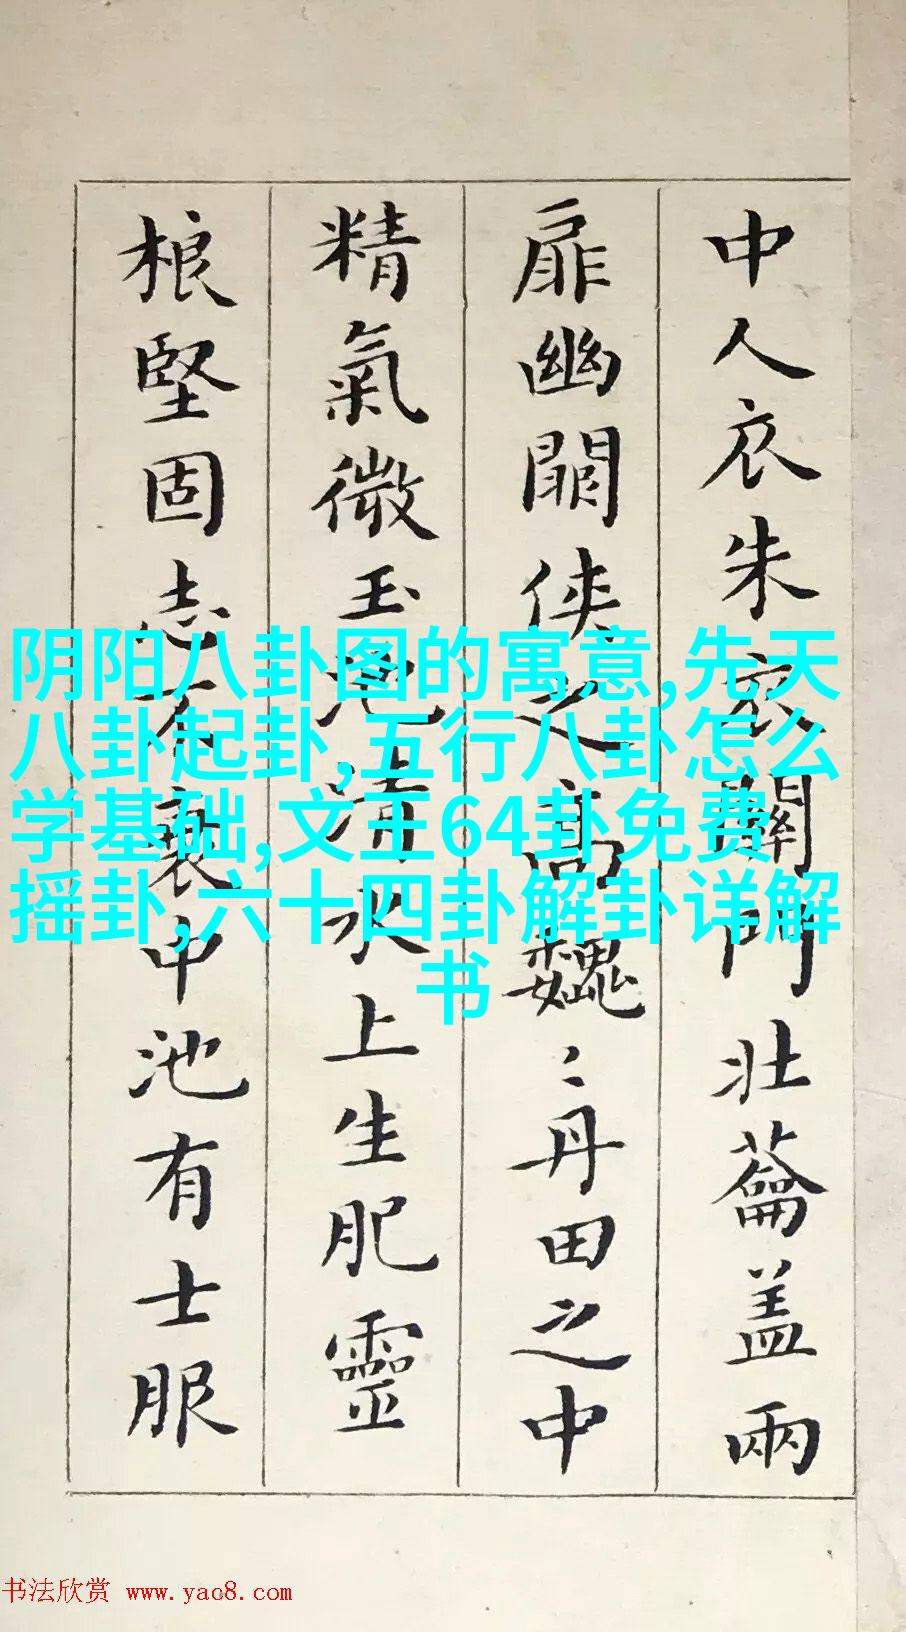 中人衣朱衣關門壯蘥盖兩
扉幽闕侠之髙巍〻丹田之中
精氣微玉池清水上生肥靈
根堅固志不衰中池有士服
阴阳八卦图的寓意,先天
八卦起卦,五行八卦怎么
学基础,文王64卦免费
摇卦,六十四卦解卦详解
书
书法欣赏 www.yac8.com